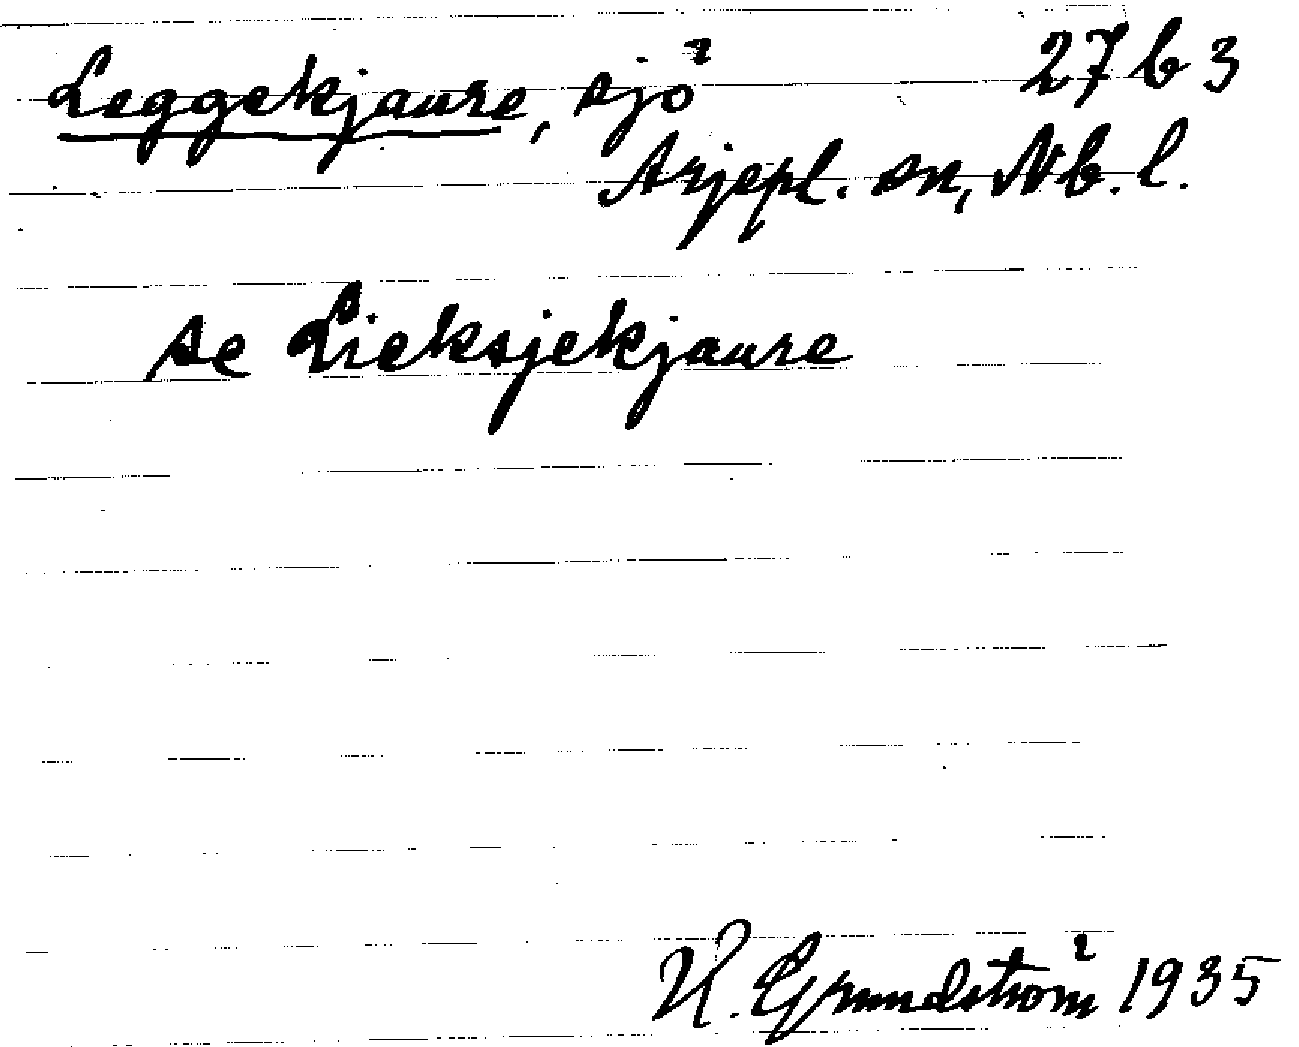 Leggekjaure, sjö 27 b 3
Arjepl. sn, Nb. l.
se Lieksjekjaure
H. Grundström 1935